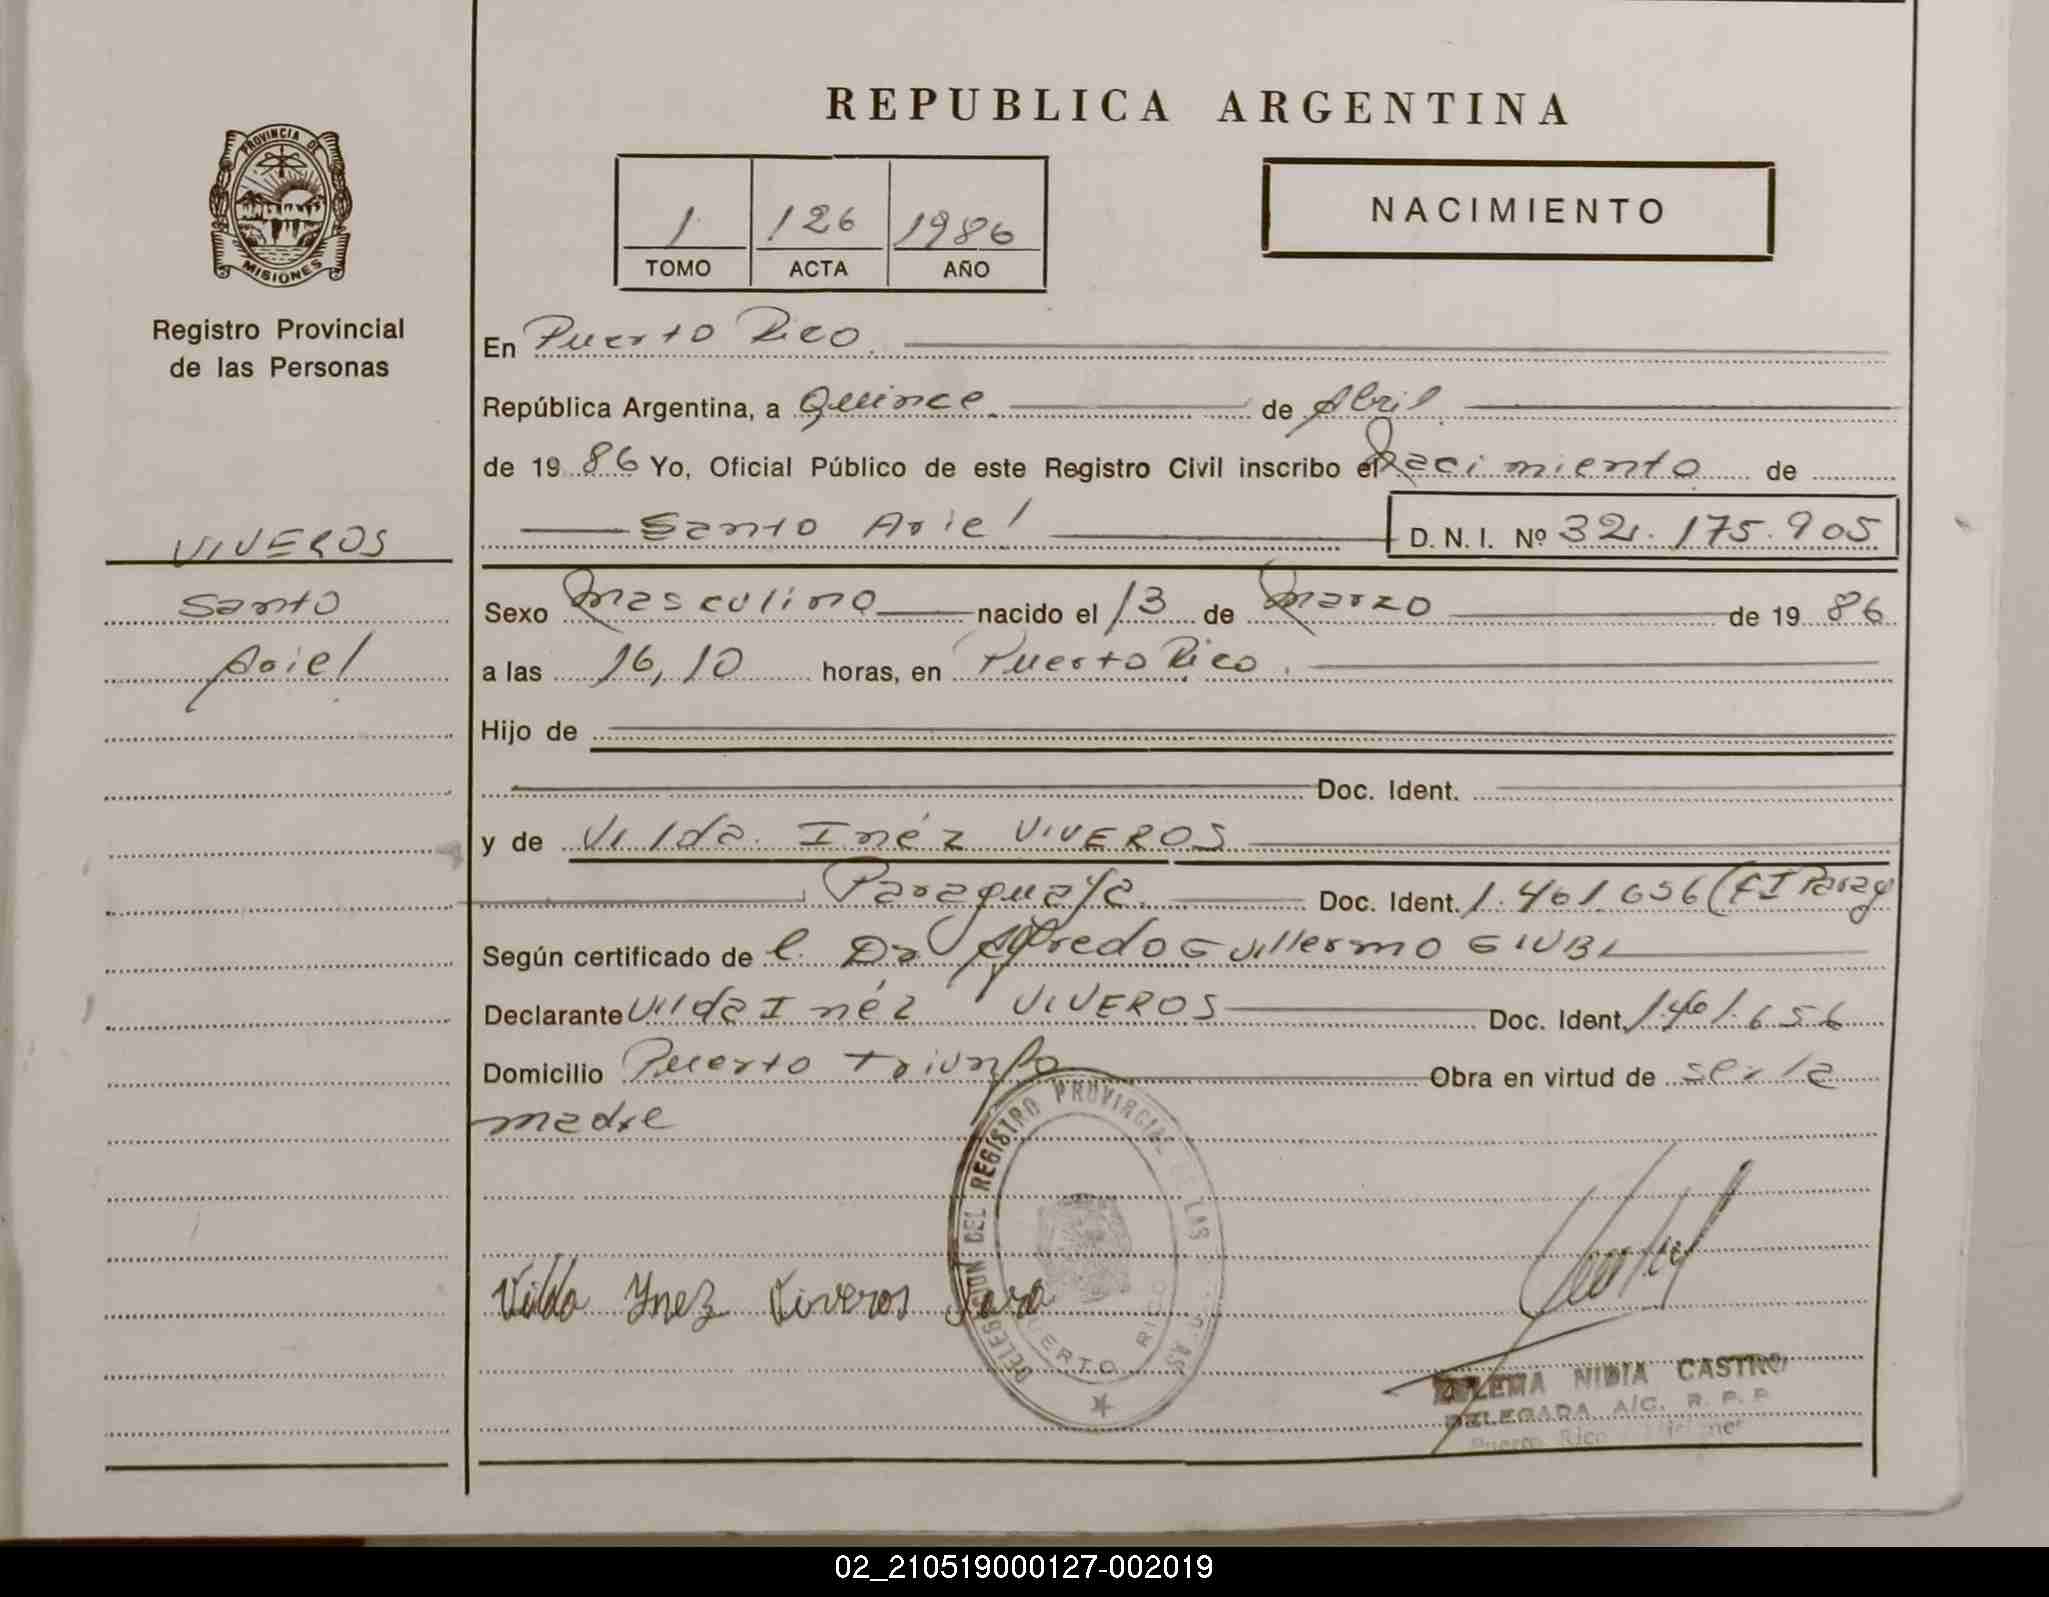 REPUBLICA ARGENTINA
PROVINCIA DE
MISIONES
Registro Provincial
de las Personas
VIVEROS
Santo
Ariel
1 126 1986
TOMO ACTA AÑO
NACIMIENTO
En Puerto Rico
República Argentina, a Quince de Abril
de 19 86 Yo, Oficial Público de este Registro Civil inscribo el Nacimiento de
Santo Ariel D. N. I. Nº 32.175.905
Sexo Masculino nacido el 13 de Marzo de 19 86
a las 16,10 horas, en Puerto Rico
Hijo de
Doc. Ident.
y de Vilda Inéz VIVEROS
Paraguaya Doc. Ident. 1.461.656 (CI Parag
Según certificado de l Dr Alfredo Guillermo GIUBI
Declarante Vilda Inéz VIVEROS Doc. Ident. 1.461.656
Domicilio Puerto Triunfo Obra en virtud de ser la
madre
DELEGACION DEL REGISTRO PROVINCIAL DE LAS
PUERTO RICO
Vilda Ynez Viveros Jara
NIDIA CASTRO
DELEGADA A/C. R. P. P.
Puerto Rico Misiones
02_210519000127-002019